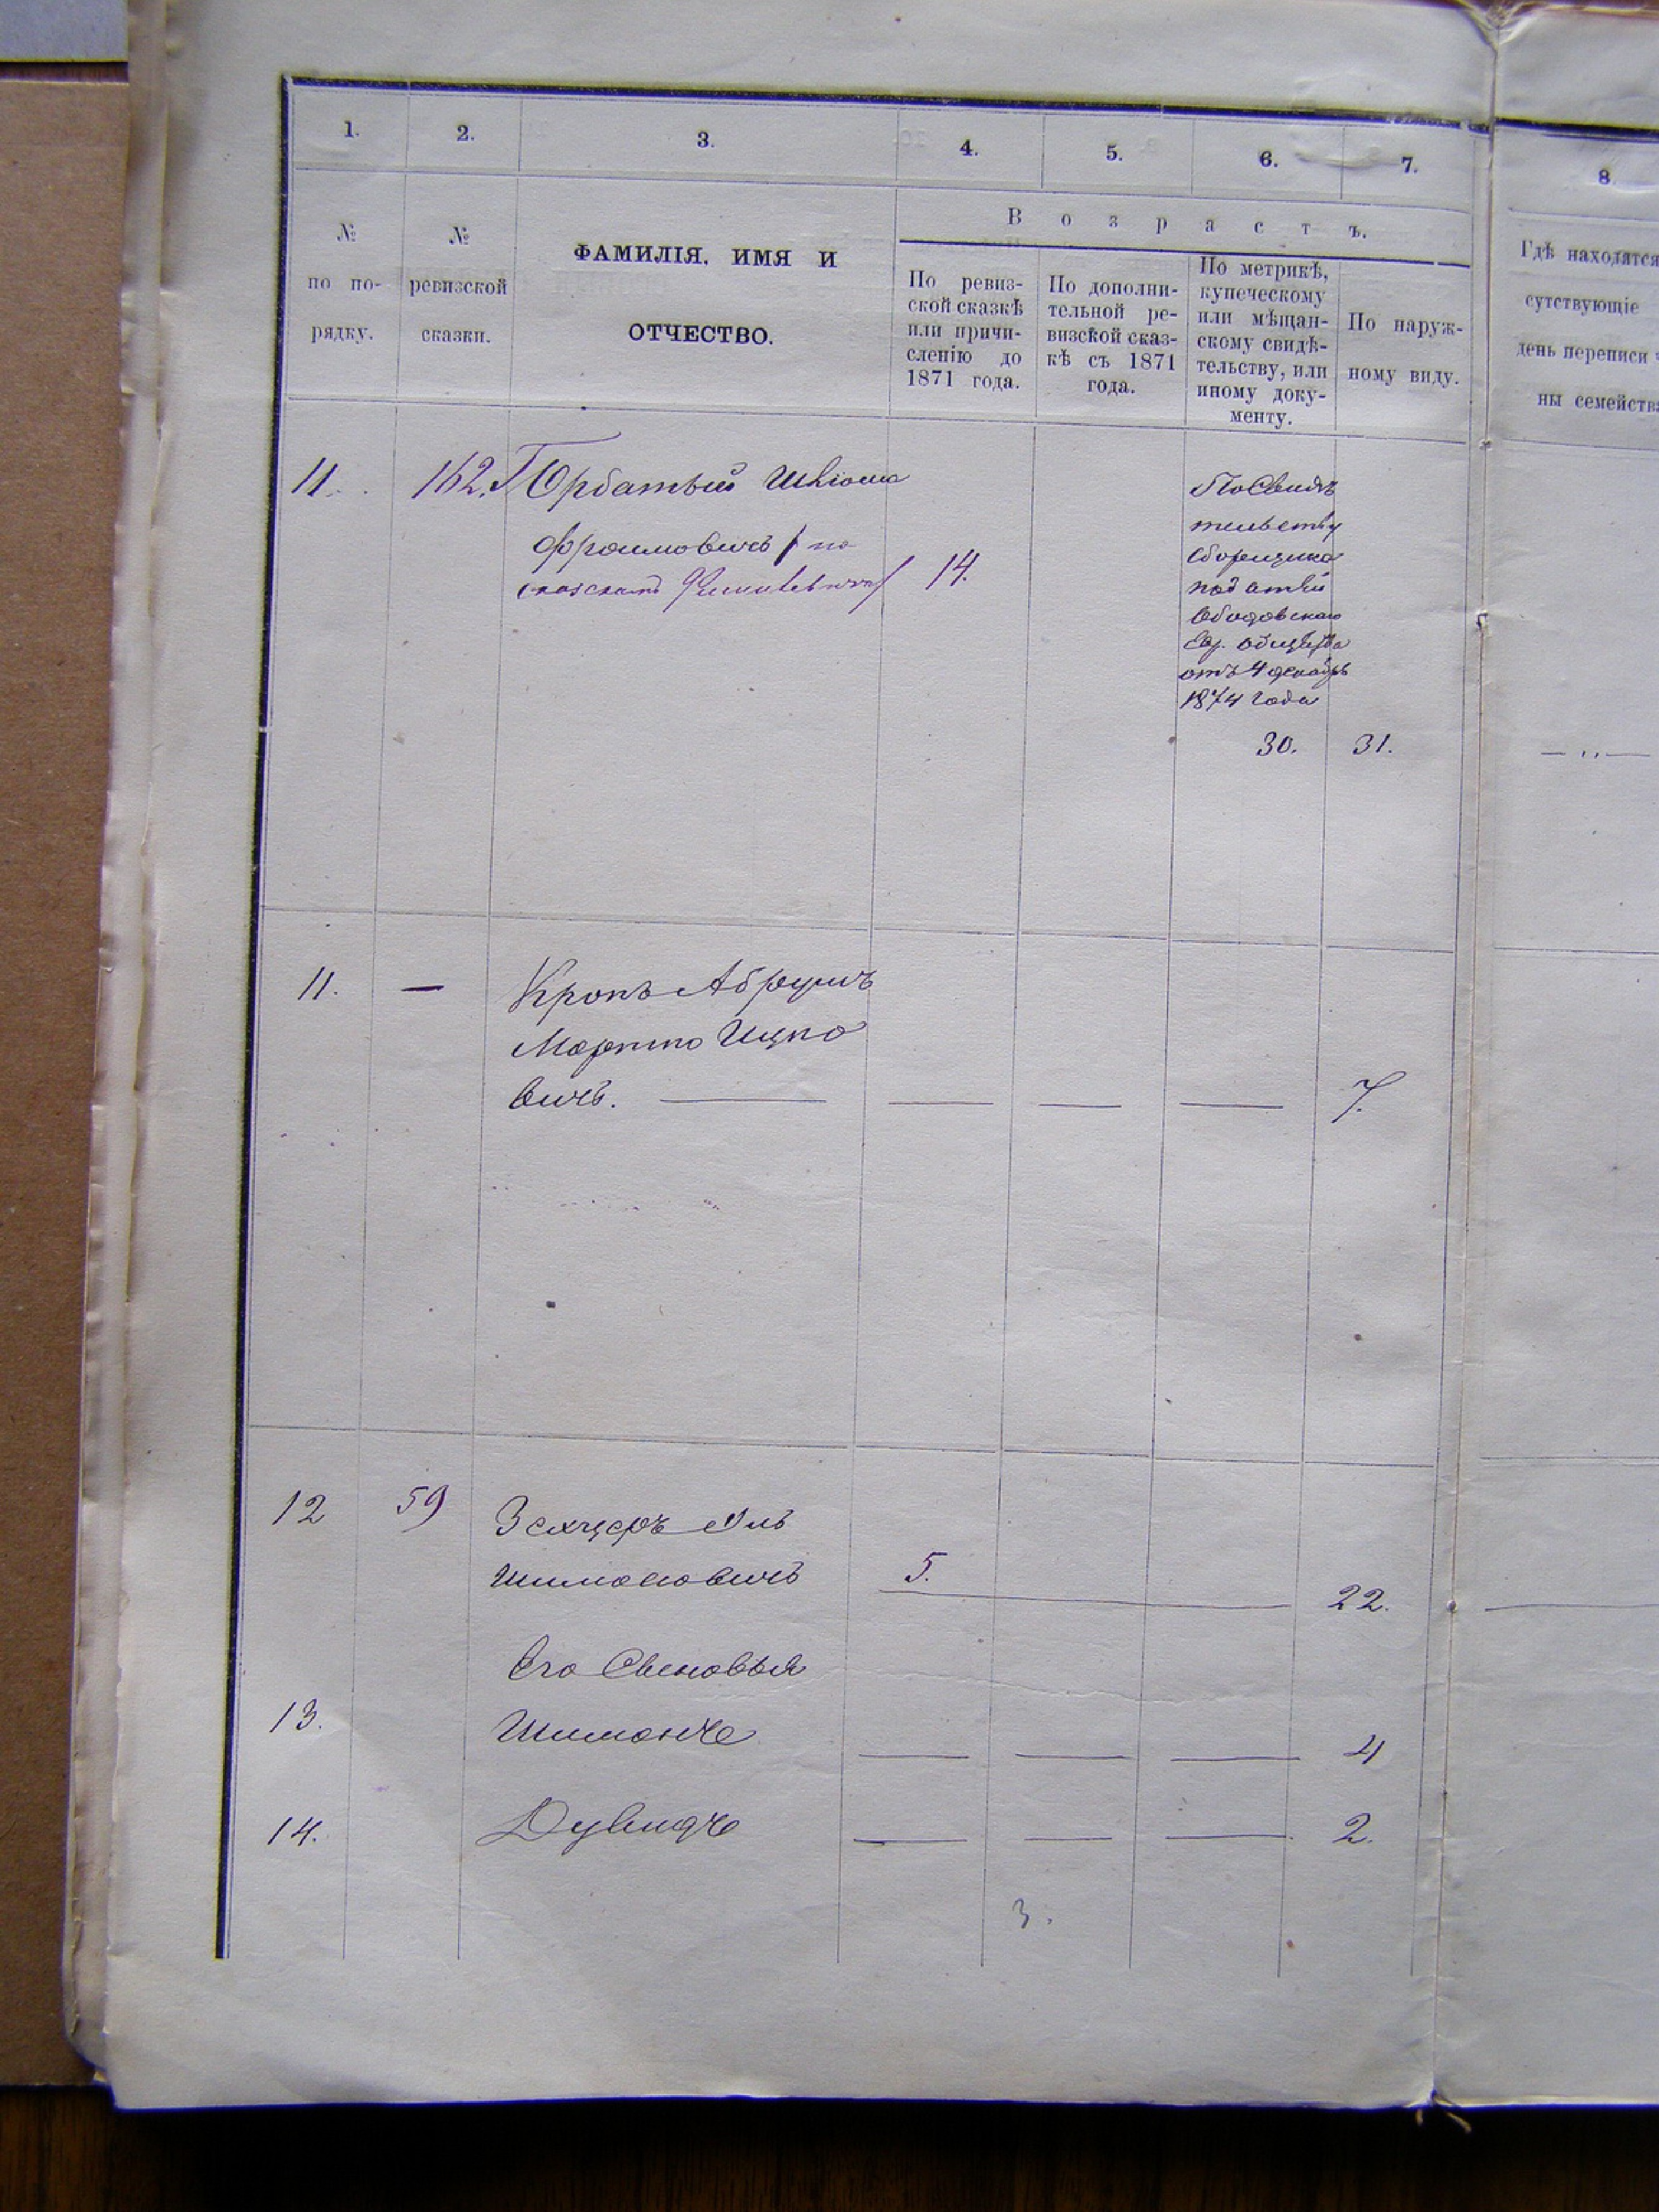 1. 2. 3. 4. 5. 6. 7. 8.
№ по по- рядку.
№ ревизской сказки.
ФАМИЛІЯ, ИМЯ И
ОТЧЕСТВО.
Возрастъ.
По ревиз-
ской сказкѣ
или причи-
сленію до
1871 года.
По дополни-
тельной ре-
визской сказ-
кѣ съ 1871
года.
По метрикѣ,
купеческому
или мѣщан-
скому свидѣ-
тельству, или
иному доку-
менту.
По наруж-
ному виду.
Гдѣ находятся
сутствующіе
день переписи
ны семейства
11. 162. Горбатый Шліома
Фроимовичъ / по
14.
По Свидѣ
тельству
Сборщика
податей
Ободовскаго
Евр. общества
отъ 4 декабря
1874 года
30. 31. — " —
11. — Кропъ Абрумъ
Мортко Ицко
вичъ. — — — — 7.
12 59 Зельцеръ
Шимоновичъ 5. 22.
Его Сыновья
13. Шимонъ — — — 4
14. Дувидъ — — — 2.
3.